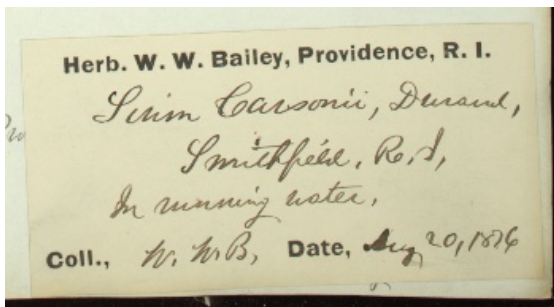 Herb. W. W. Bailey, Providence, R. I.
Sium Carsonii, Durand,
Smithfield, R. I,
In running water,
Coll., W. W. B, Date, Aug 20, 1876